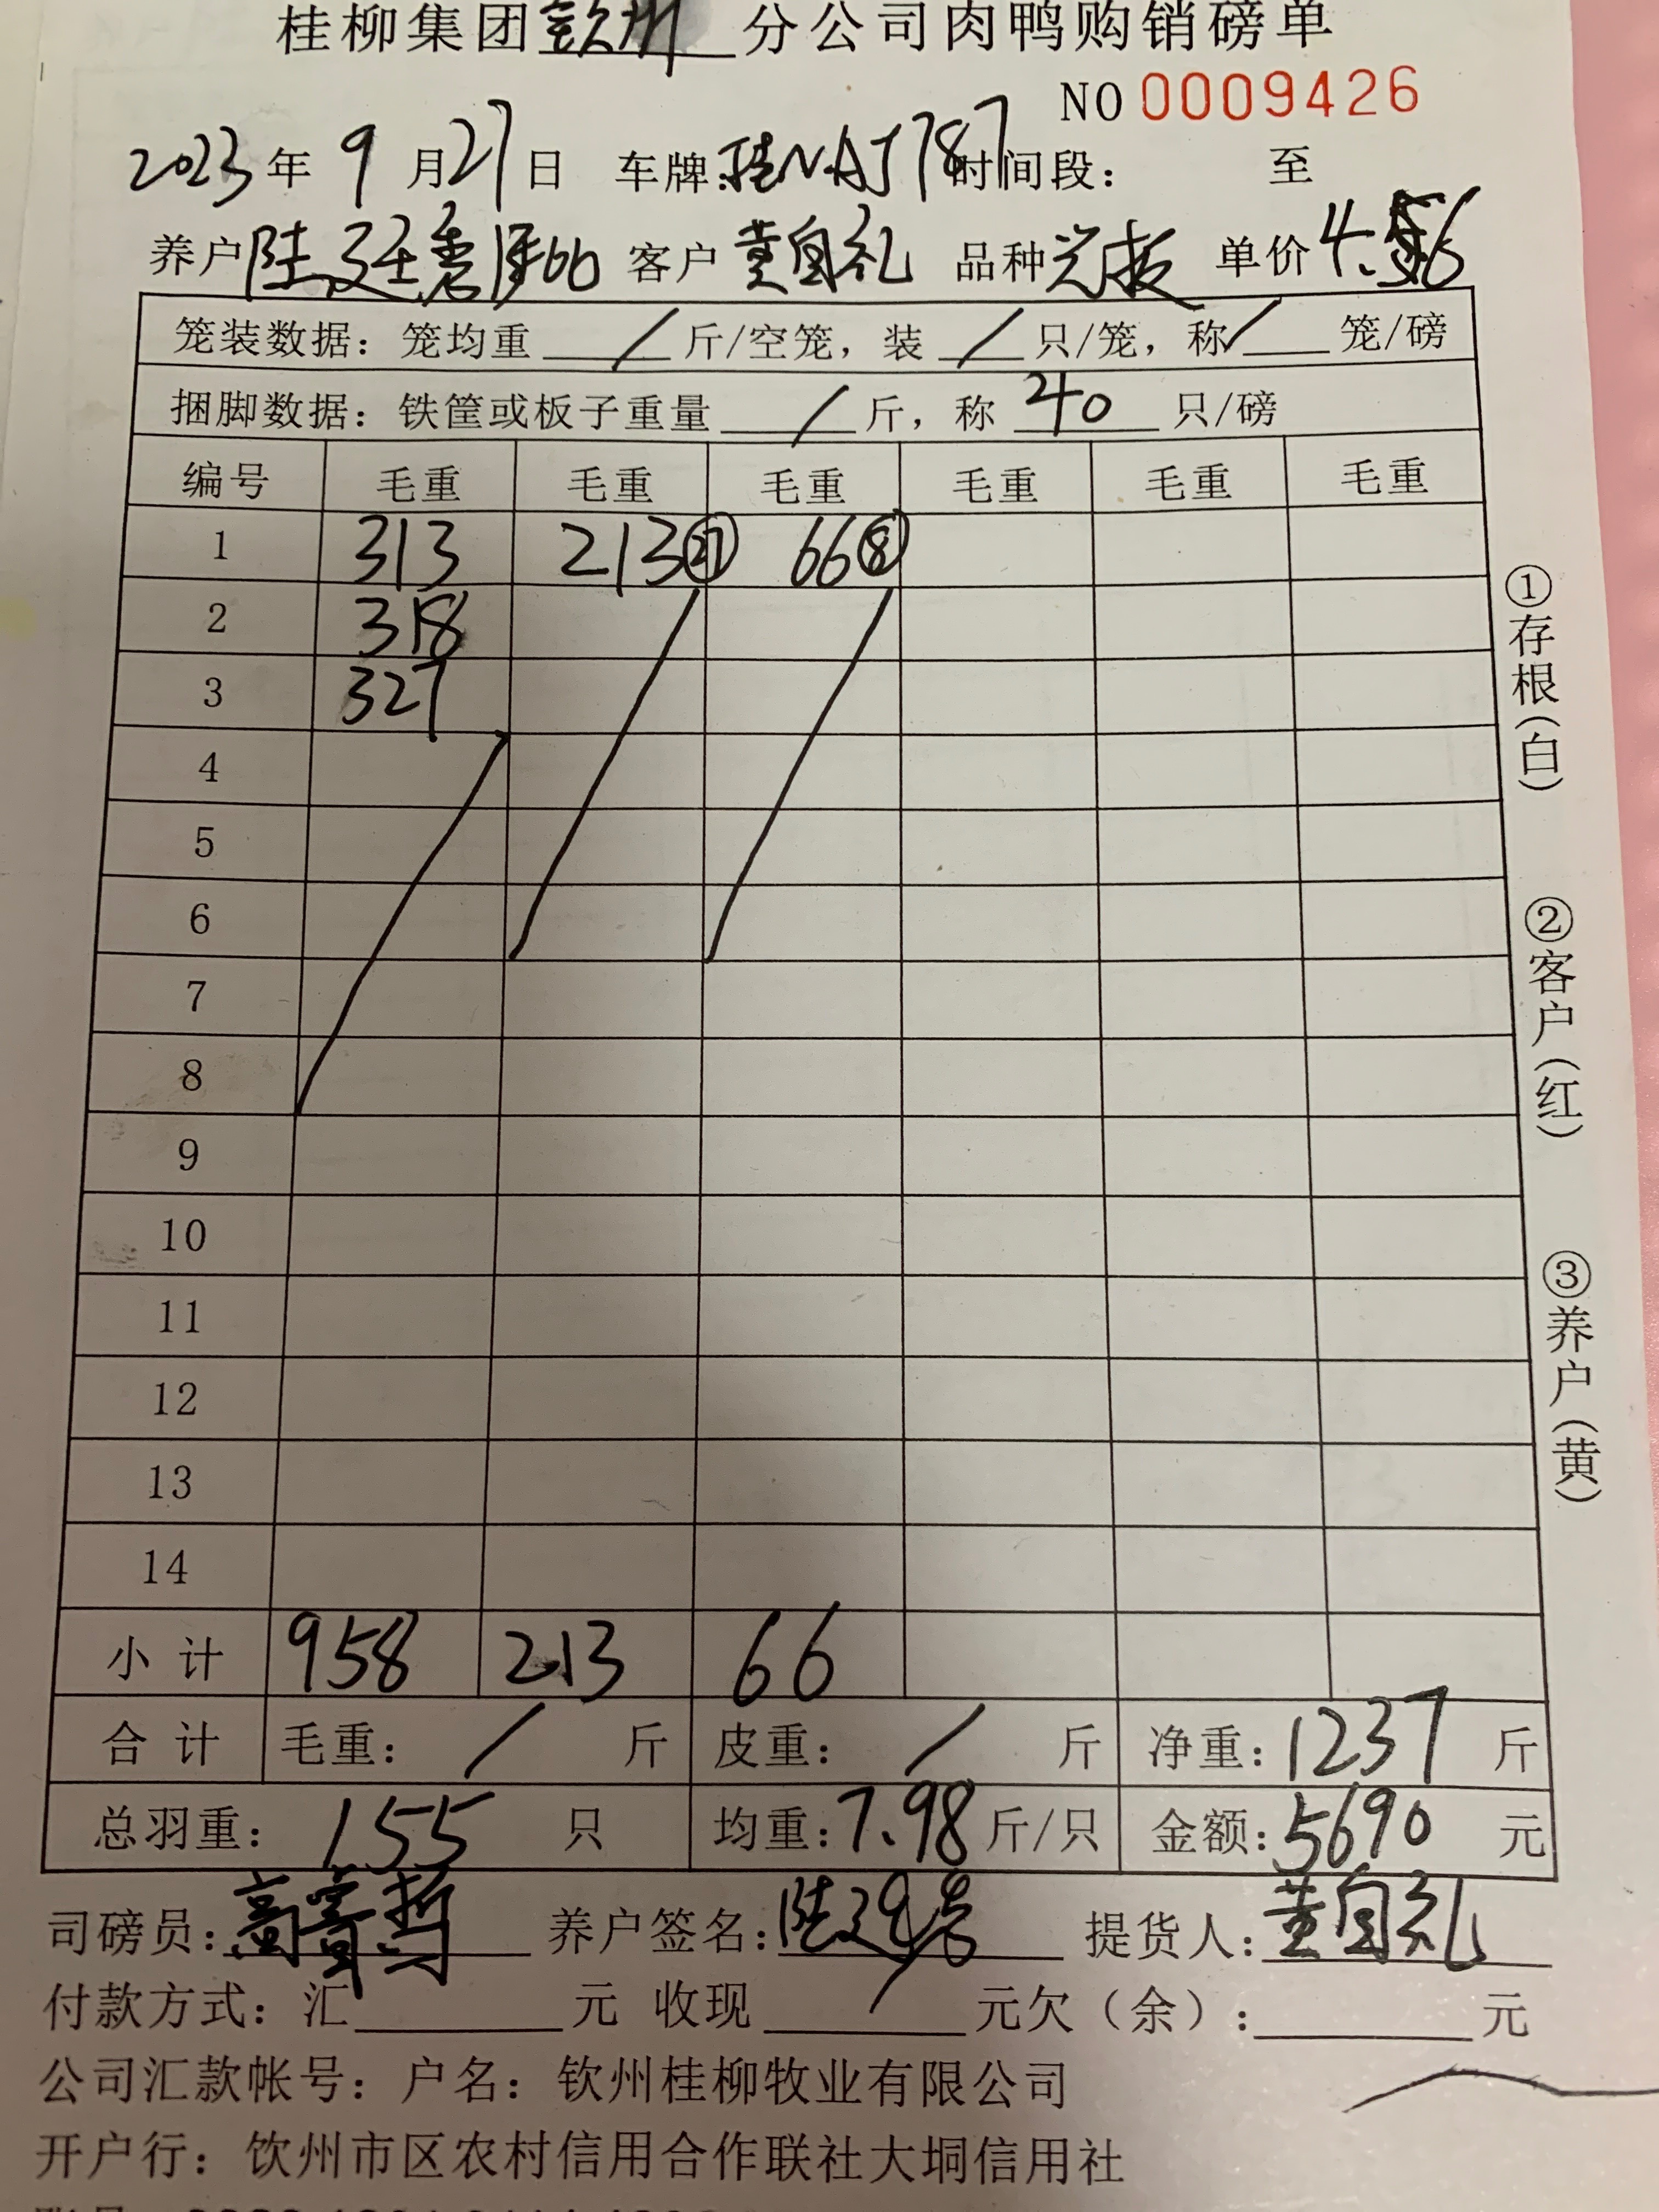 桂柳集团钦州分公司肉鸭购销磅单
NO 0009426
2023年9月27日 车牌:桂NAJ787 时间段: 至
养户 陆廷 客户 黄自礼 品种 单价 4.
笼装数据: 笼均重 / 斤/空笼, 装 / 只/笼, 称 / 笼/磅
捆脚数据: 铁筐或板子重量 / 斤, 称 40 只/磅
编号 毛重 毛重 毛重 毛重 毛重 毛重
1 313 213㉗ 66⑧
2 318
3 327
4
5
6
7
8
9
10
11
12
13
14
小计 958 213 66
合计 毛重: / 斤 皮重: / 斤 净重: 1237 斤
总羽重: 155 只 均重: 7.98 斤/只 金额: 5690 元
司磅员: 高 哲 养户签名: 陆廷 提货人: 黄自礼
付款方式: 汇 元 收现 / 元欠(余): 元
公司汇款帐号: 户名: 钦州桂柳牧业有限公司
开户行: 钦州市区农村信用合作联社大垌信用社
①存根(白)
②客户(红)
③养户(黄)